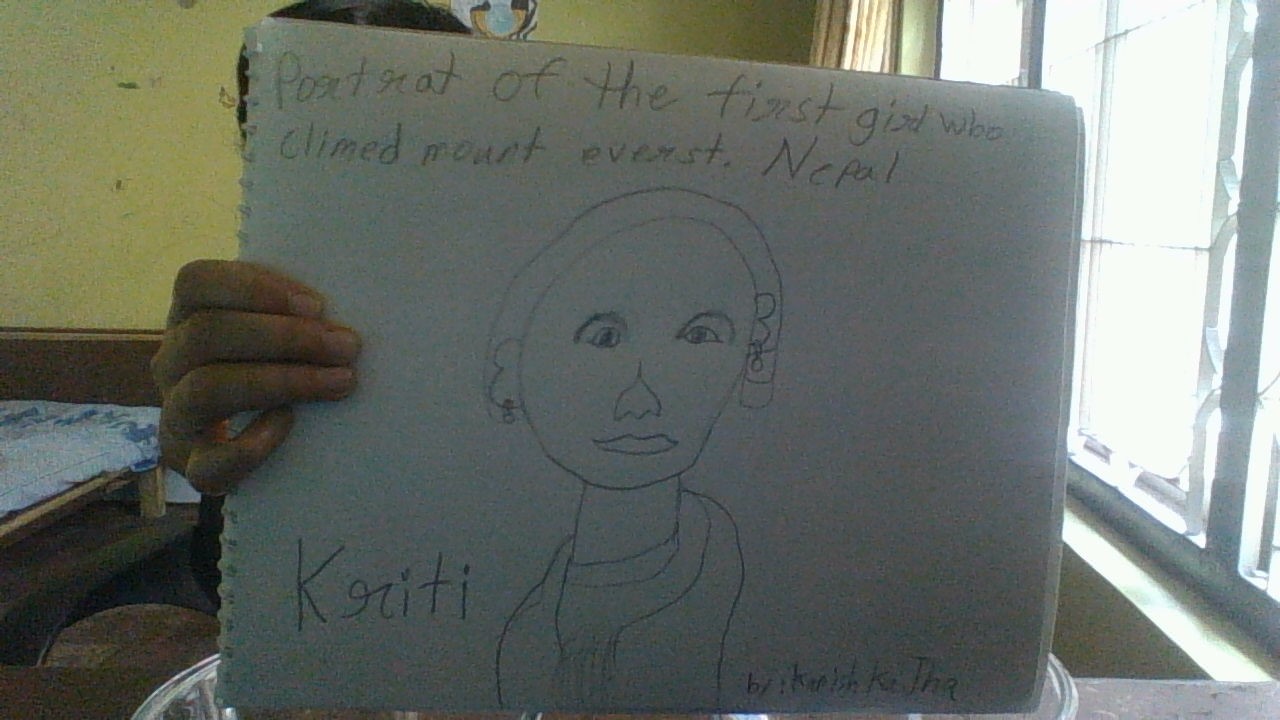 Portrat of the first girl who
climed mount everst. Nepal
Kriti
by: Kanishka Jha